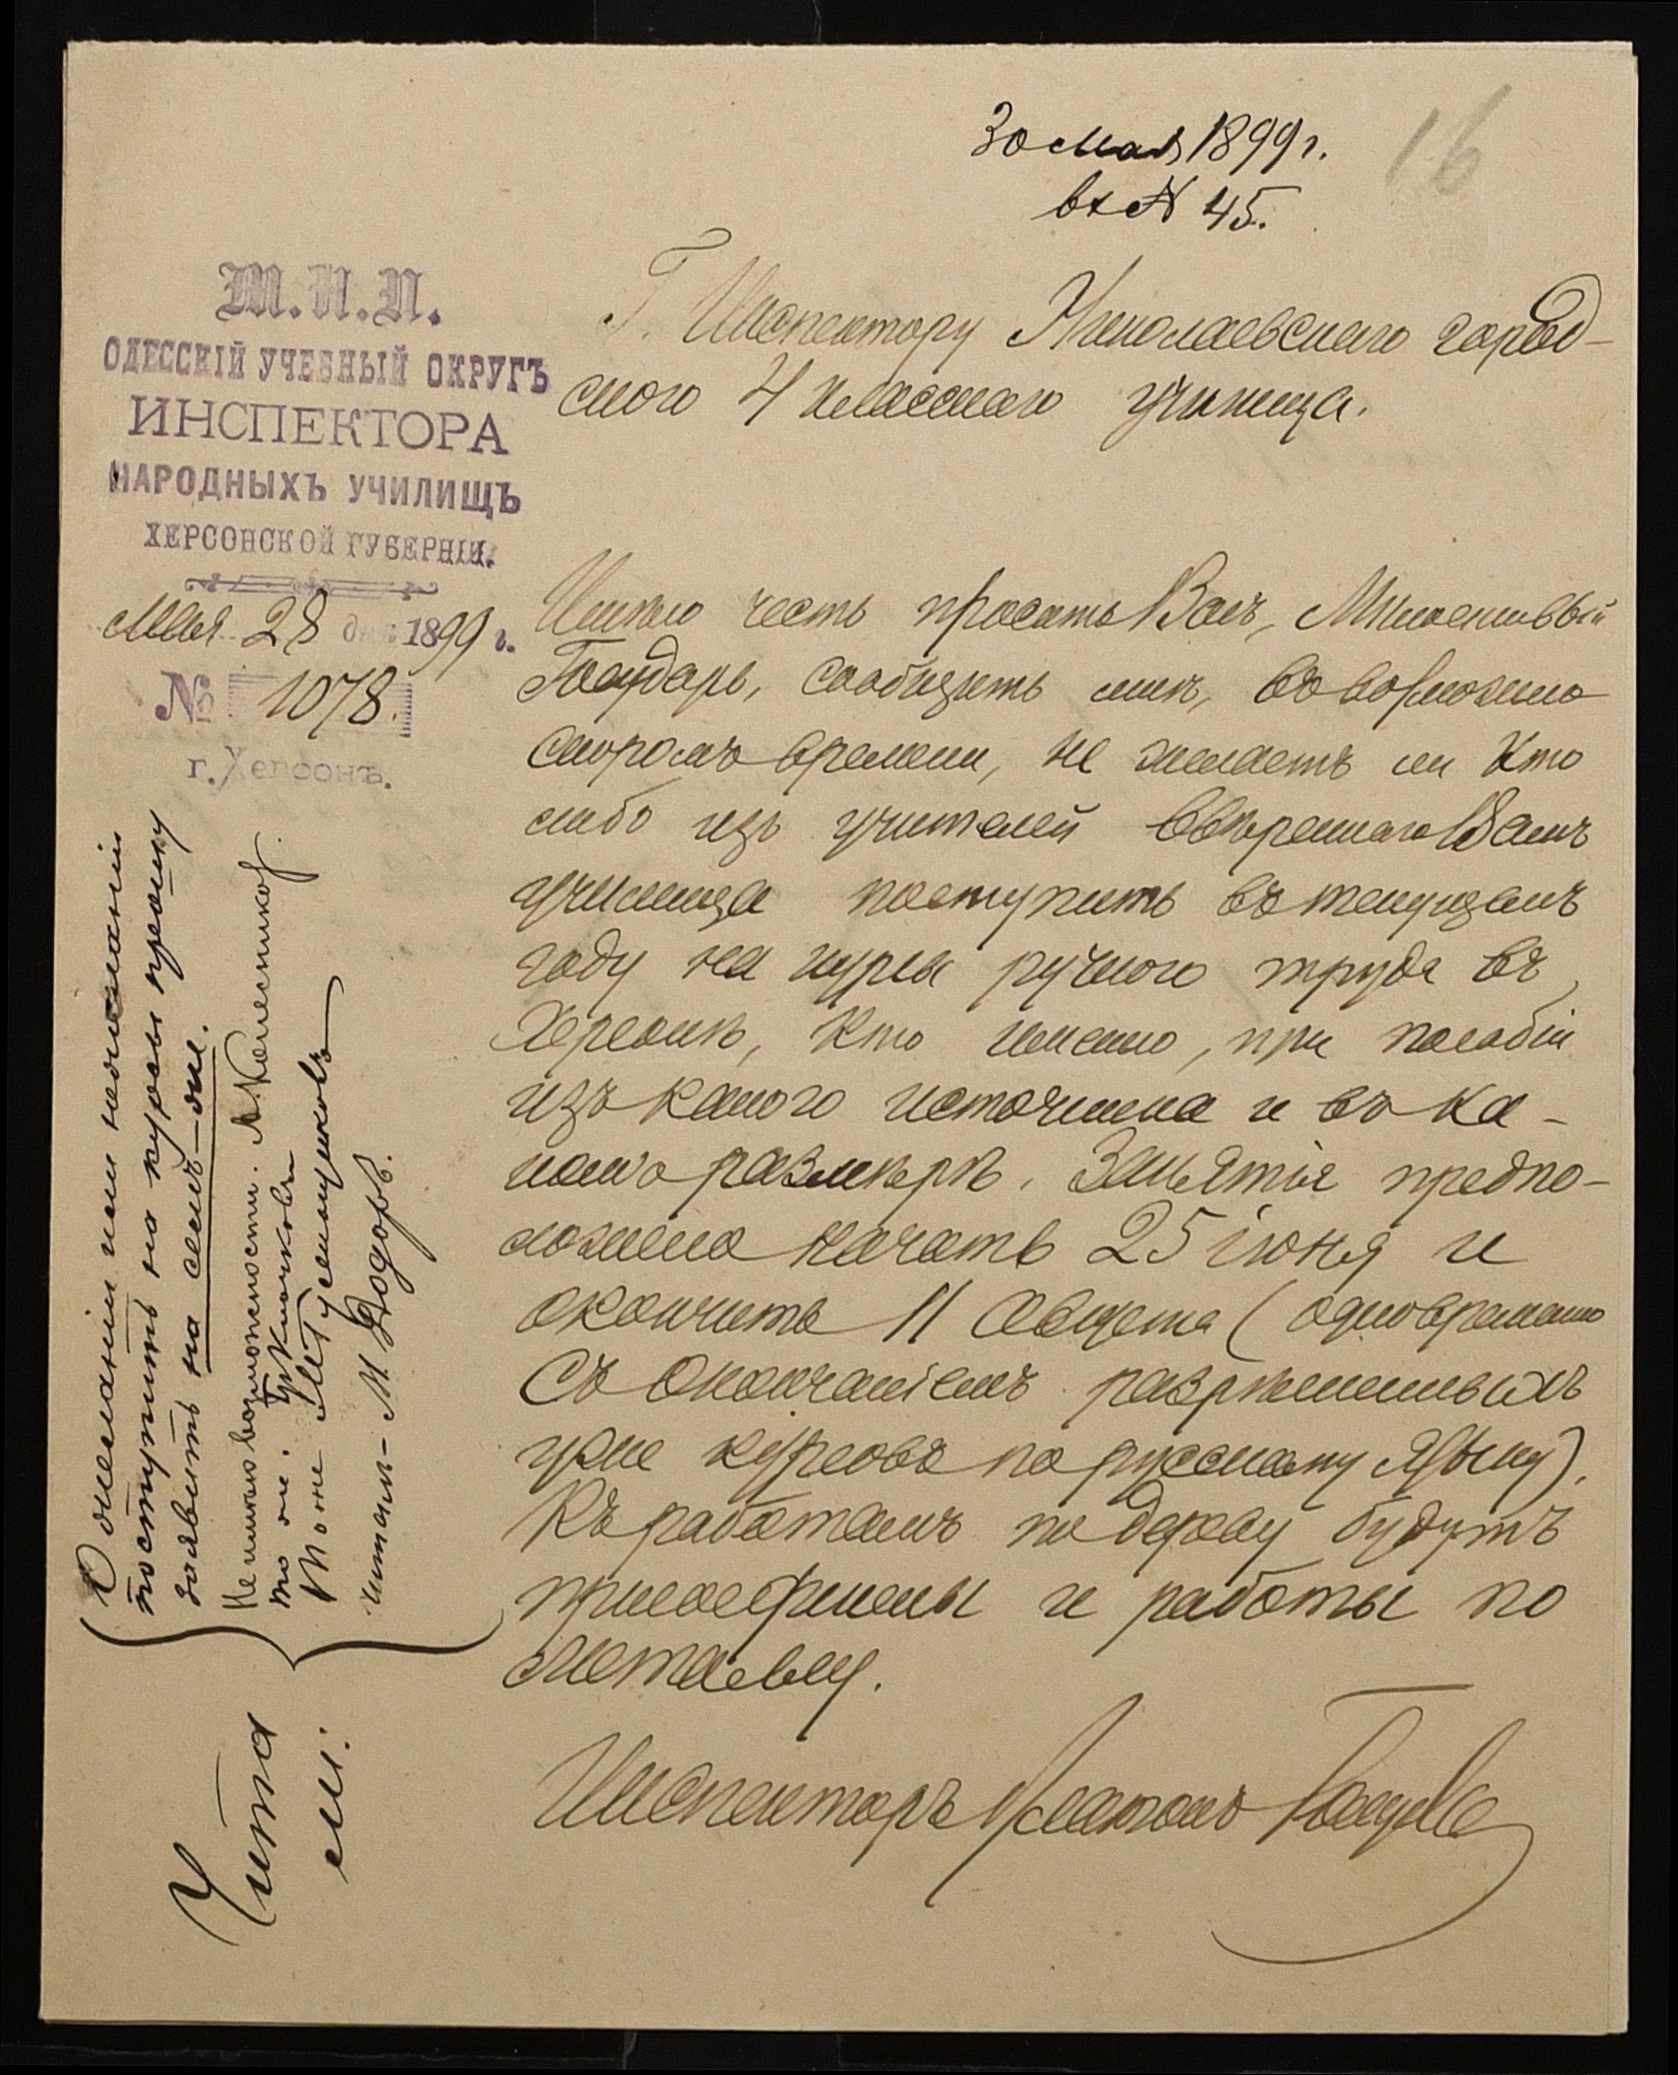 30 Мая 1899 г.
вх № 45.
16
М. Н. П.
ОДЕССКІЙ УЧЕБНЫЙ ОКРУГЪ
ИНСПЕКТОРА
НАРОДНЫХЪ УЧИЛИЩЪ
ХЕРСОНСКОЙ ГУБЕРНІИ.
Мая 28 дня 1899 г.
№ 1078.
г. Херсонъ.
Г. Инспектору Николаевскаго город-
ского 4 класснаго училища.
Имѣю честь просить Васъ, Милостивый
Государь, сообщить мнѣ, въ возможно
скоромъ времени, не желаетъ ли кто
либо изъ учителей ввѣреннаго Вамъ
училища поступить въ текущемъ
году на курсы ручного труда въ
Херсонѣ, кто именно, при пособіи
изъ какого источника и въ ка-
комъ размѣрѣ. Занятія предпо-
ложено начать 25 іюня и
окончить 11 августа (одновременно
съ окончаніемъ разрѣшенныхъ
уже курсовъ по русскому языку).
Къ работамъ по дереву будутъ
присоединены и работы по
металлу.
Инспекторъ Платонъ
О желаніи или нежеланіи
поступить на курсы прошу
заявить на семъ-же.
Не имѣю возможности. А. Колесников.
то же.
Тоже
читалъ - М.
Чита
ли: